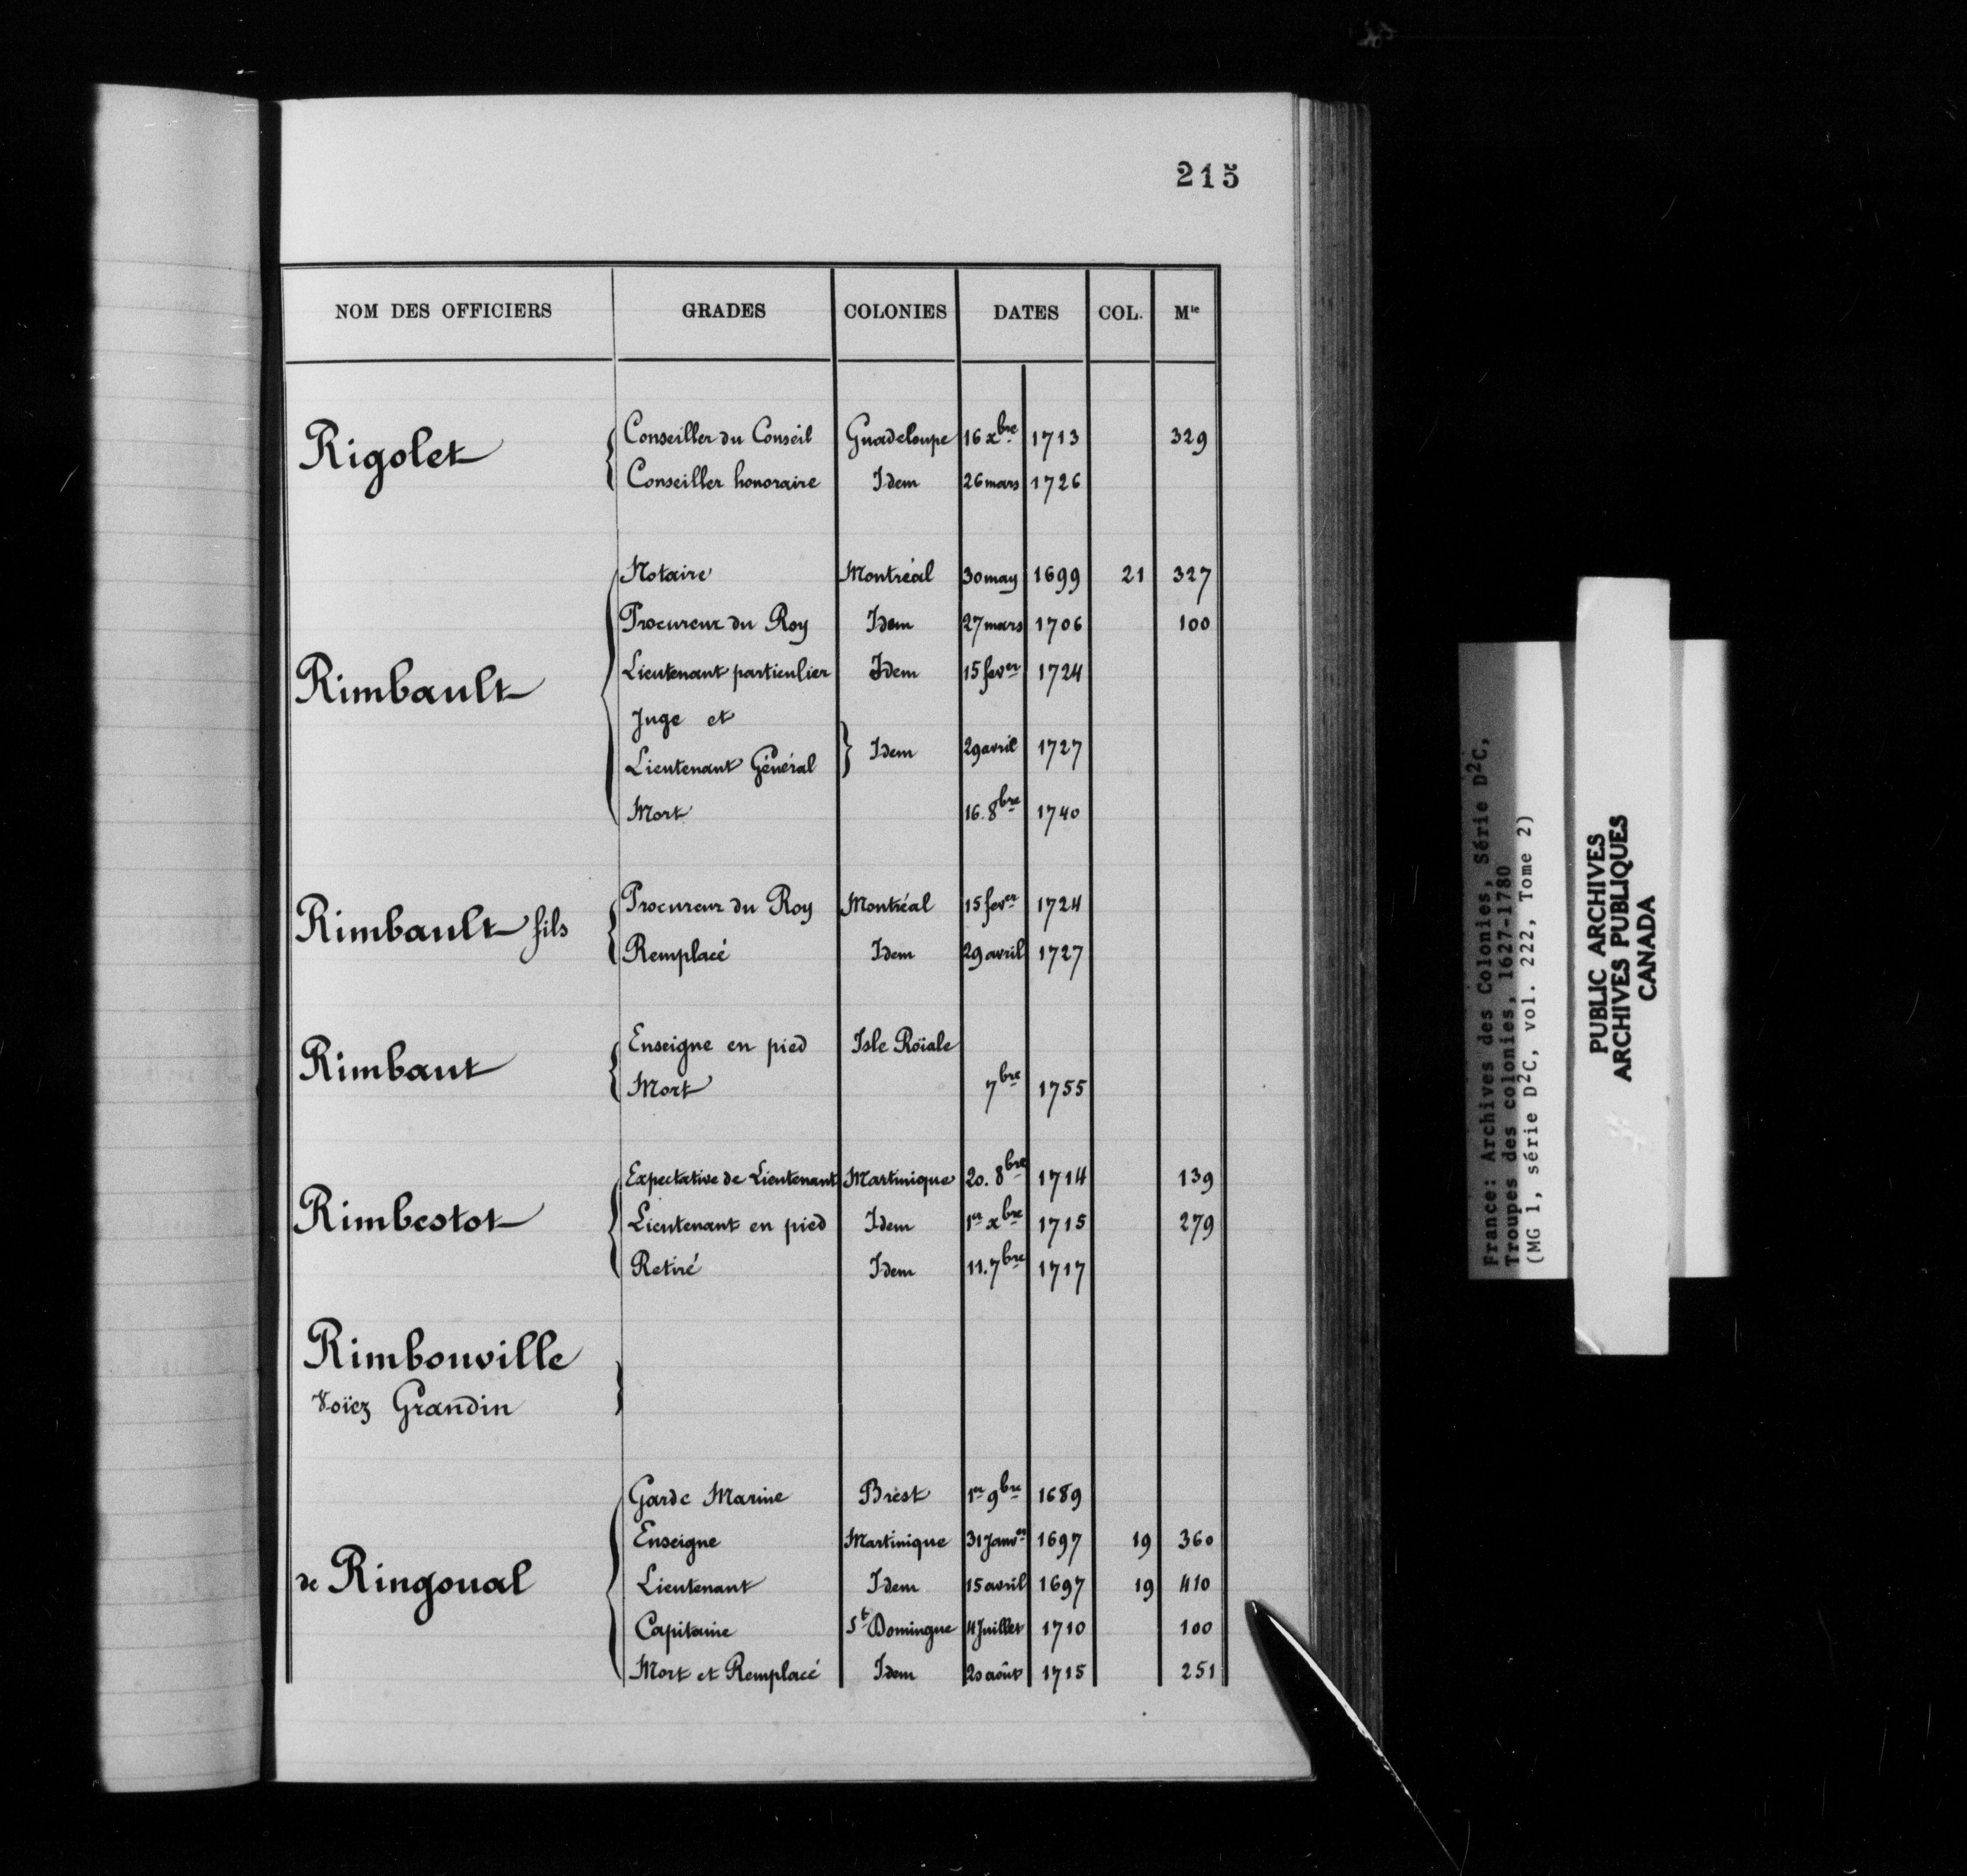 215
NOM DES OFFICIERS GRADES COLONIES DATES COL. Mle
Rigolet
Conseiller du Conseil Guadeloupe 16 xbre 1713 329
Conseiller honoraire Idem 26 mars 1726
Rimbault
Notaire Montréal 30 may 1699 21 327
Procureur du Roy Idem 27 mars 1706 100
Lieutenant particulier Idem 15 fever 1724
Juge et
Lieutenant Général } Idem 29 avril 1727
Mort 16. 8bre 1740
Rimbault fils
Procureur du Roy Montréal 15 fever 1724
Remplacé Idem 29 avril 1727
Rimbaut
Enseigne en pied Isle Roïale
Mort 7bre 1755
Rimbestot
Expectative de Lieutenant Martinique 20. 8bre 1714 139
Lieutenant en pied Idem 1er xbre 1715 279
Retiré Idem 11. 7bre 1717
Rimbouville
Voïez Grandin
de Ringoual
Garde Marine Brest 1er 9bre 1689
Enseigne Martinique 31 Janver 1697 19 360
Lieutenant Idem 15 avril 1697 19 410
Capitaine St Domingue 4 Juillet 1710 100
Mort et Remplacé Idem 20 août 1715 251
France: Archives des Colonies, Série D2C,
Troupes des colonies, 1627-1780
(MG 1, série D2C, vol. 222, Tome 2)
PUBLIC ARCHIVES
ARCHIVES PUBLIQUES
CANADA